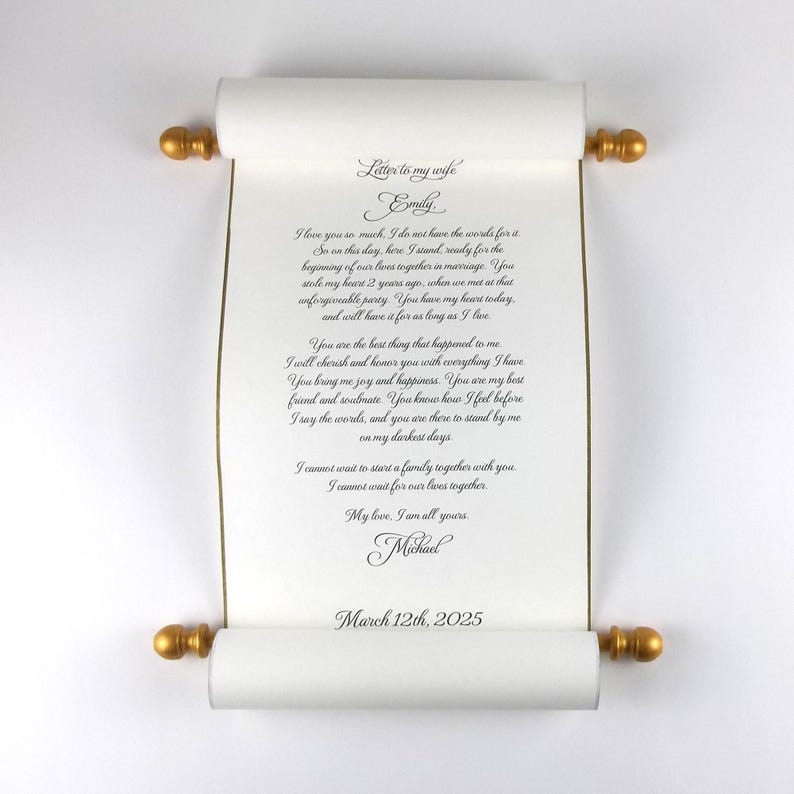 Letter to my wife
Emily,
I love you so much, I do not have the words for it.
So on this day, here I stand, ready for the
beginning of our lives together in marriage. You
stole my heart 2 years ago, when we met at that
unforgiveable party. You have my heart today,
and will have it for as long as I live.
You are the best thing that happened to me.
I will cherish and honor you with everything I have.
You bring me joy and happiness. You are my best
friend and soulmate. You know how I feel before
I say the words, and you are there to stand by me
on my darkest days.
I cannot wait to start a family together with you.
I cannot wait for our lives together.
My love, I am all yours.
Michael
March 12th, 2025